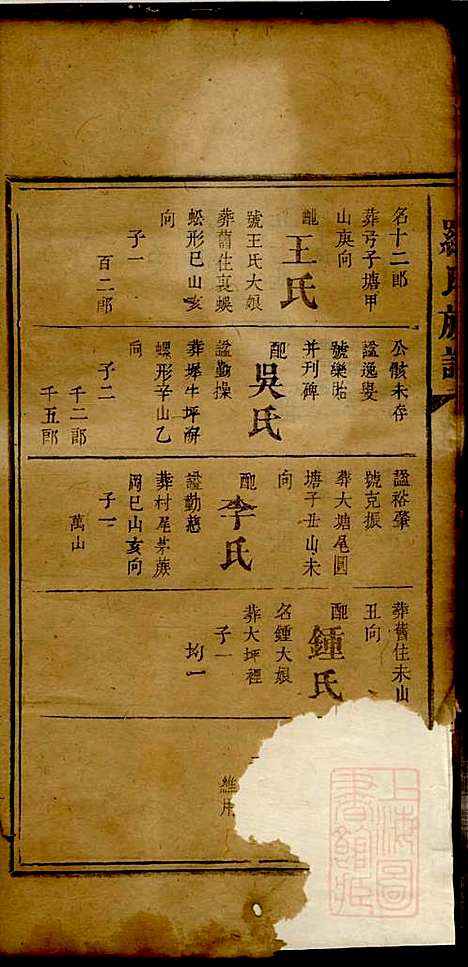 羅氏族譜
名十二郎
葬弓子塘甲
山庚向
配
王氏
號王氏大娘
葬舊住裏蜈
蚣形巳山亥
向
子一
百二郎
公骸未存
諡逸叟
號樂貽
并刊碑
配
吳氏
諡勤操
葬犀牛坪螄
螺形辛山乙
向
子二
千二郎
千五郎
諡裕肇
號克振
葬大塘尾圓
塘子丑山未
向
配
李氏
諡勤慈
葬村尾茅蔟
岡巳山亥向
子一
萬山
葬舊住未山
丑向
配
鍾氏
名鍾大娘
葬大坪裡
子一
均一
維用
上海圖
書館藏